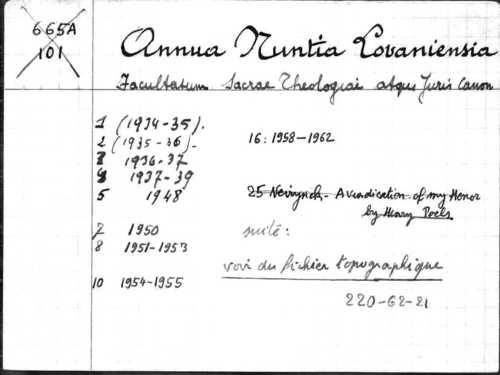 665A
101
Annua Nuntia Lovaniensia
Facultatum Sacrae Theologiai atque Juris Canon
1 (1934-35).
2 (1935-36).
3 1936-37
4 1937-39
5 1948
7 1950
8 1951-1953
10 1954-1955
16: 1958-1962
25 - A vindication of my Honor
by Henry Poels
suite:
voir du fichier topographique
220-62-21